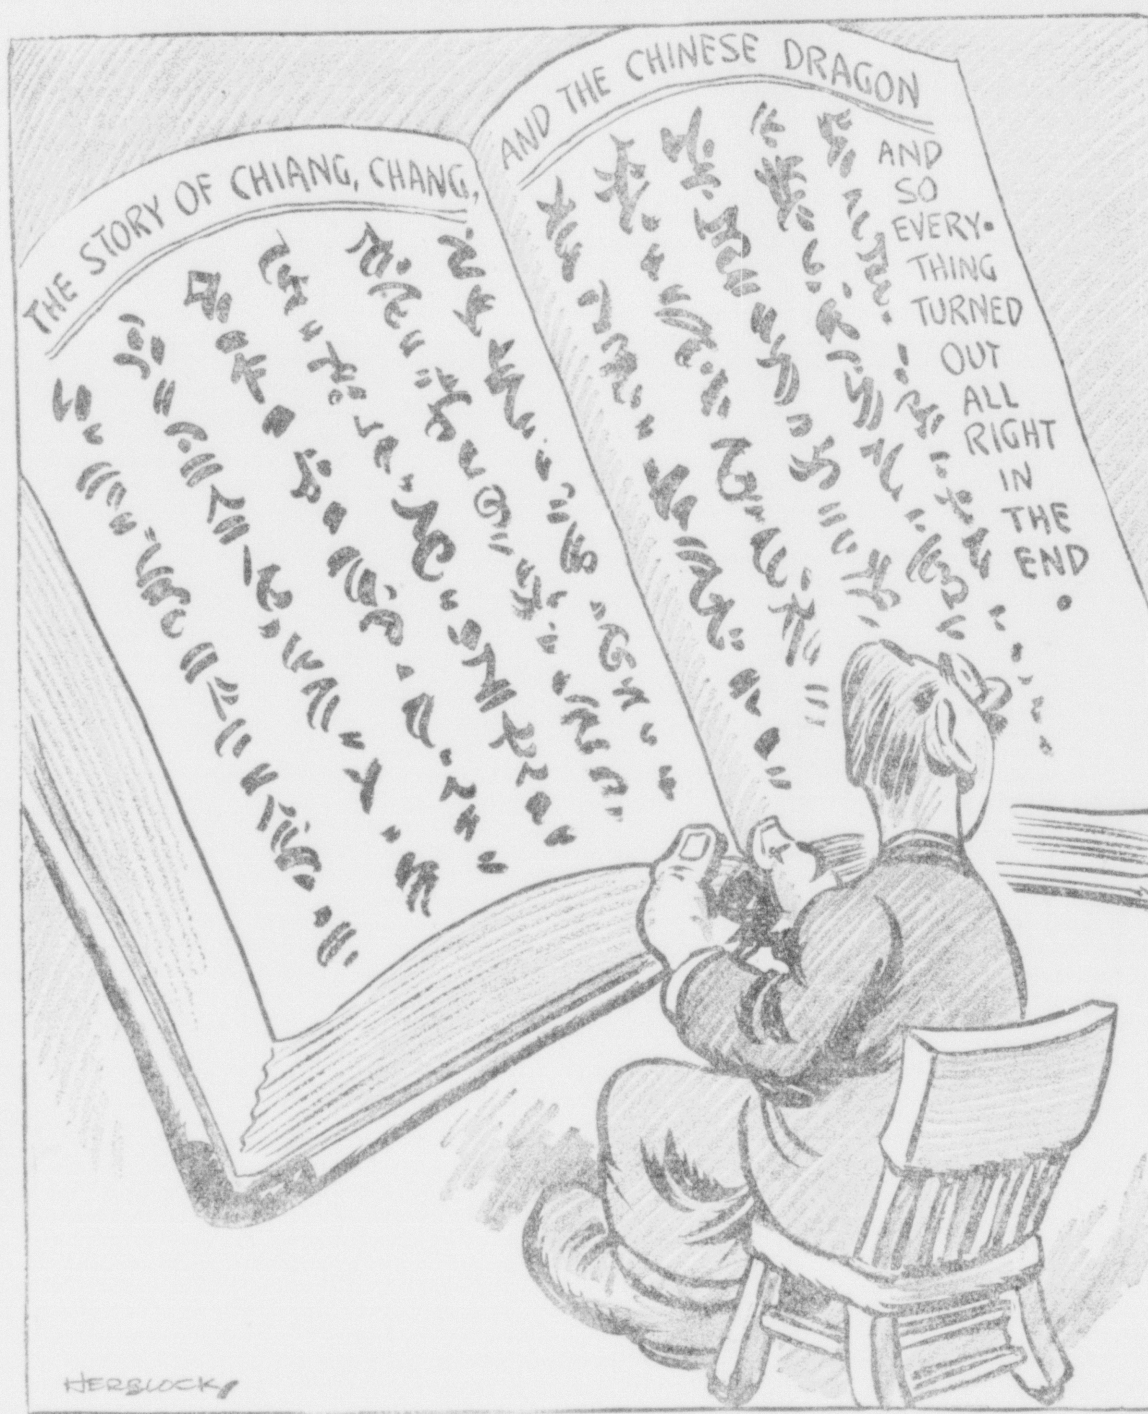 THE STORY OF CHIANG, CHANG,
AND THE CHINESE DRAGON
AND
SO
EVERY-
THING
TURNED
OUT
ALL
RIGHT
IN
THE
END
.
HERBLOCK